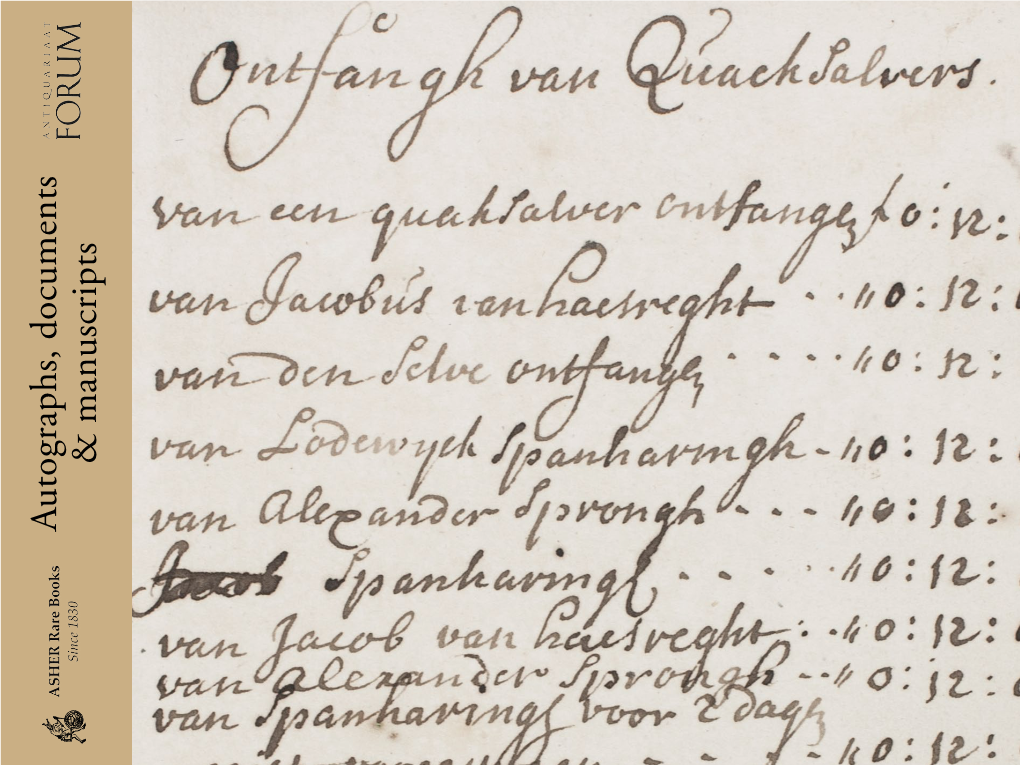 ANTIQUARIAAT
FORUM
Autographs, documents
& manuscripts
ASHER Rare Books
Since 1830
Ontfangh van Quacksalvers.
van een quaksalver ontfangen f 0:12:
van Jacobus van haesreght - - " 0:12:
van den selve ontfangen - - - - " 0:12:
van Lodewyck Spanharingh - " 0:12:
van Alexander Sprongh - - - " 0:12:
Jacob Spanharingh - - - - " 0:12:
van Jacob van haesreght - - " 0:12:
van Alexander Sprongh - - " 0:12:
van Spanharingh voor 2 dagen
" 0:12: